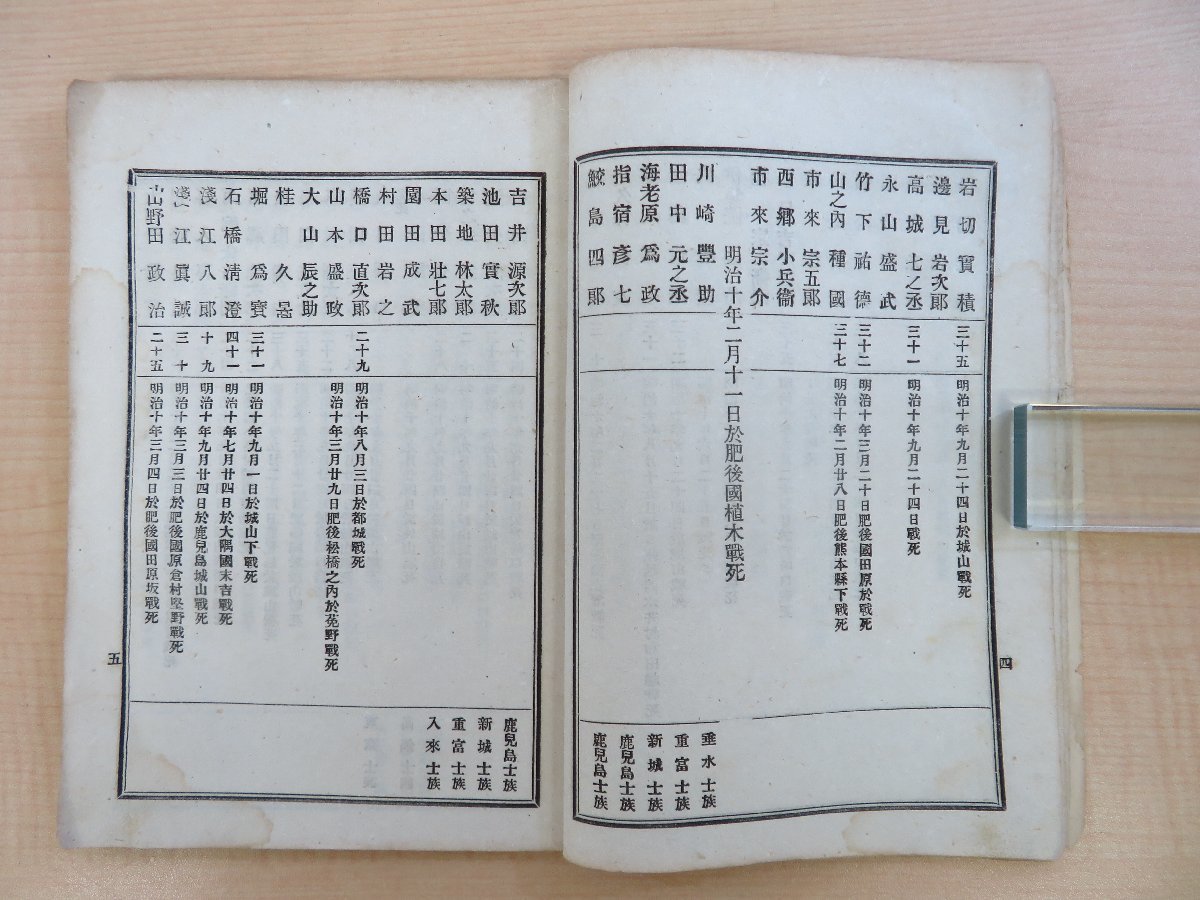 岩切實積 三十五 明治十年九月二十四日於城山戰死
邊見岩次郞
高城七之丞 三十一 明治十年九月二十四日戰死
永山盛武
竹下祐德 三十二 明治十年三月二十日肥後國田原於戰死
山之內種國 三十七 明治十年二月廿八日肥後熊本縣下戰死
市來宗五郞
西鄕小兵衞
市來宗介
明治十年二月十一日於肥後國植木戰死
川崎豐助 垂水士族
田中元之丞 重富士族
海老原爲政 新城士族
指宿彥七 鹿兒島士族
鮫島四郞 鹿兒島士族
四
吉井源次郞 鹿兒島士族
池田實秋 新城士族
築地林太郞 重富士族
本田壯七郞 入來士族
園田成武
村田岩之
橋口直次郞 二十九 明治十年八月三日於都城戰死
山本盛政 明治十年三月廿九日肥後松橋之內於苑野戰死
大山辰之助
桂久
堀爲寶 三十一 明治十年九月一日於城山下戰死
石橋淸澄 四十一 明治十年七月廿四日於大隅國末吉戰死
淺江八郞 十九 明治十年九月廿四日於鹿兒島城山戰死
淺江眞誠 三十 明治十年三月三日於肥後國原倉村堅野戰死
山野田政治 二十五 明治十年三月四日於肥後國田原坂戰死
五